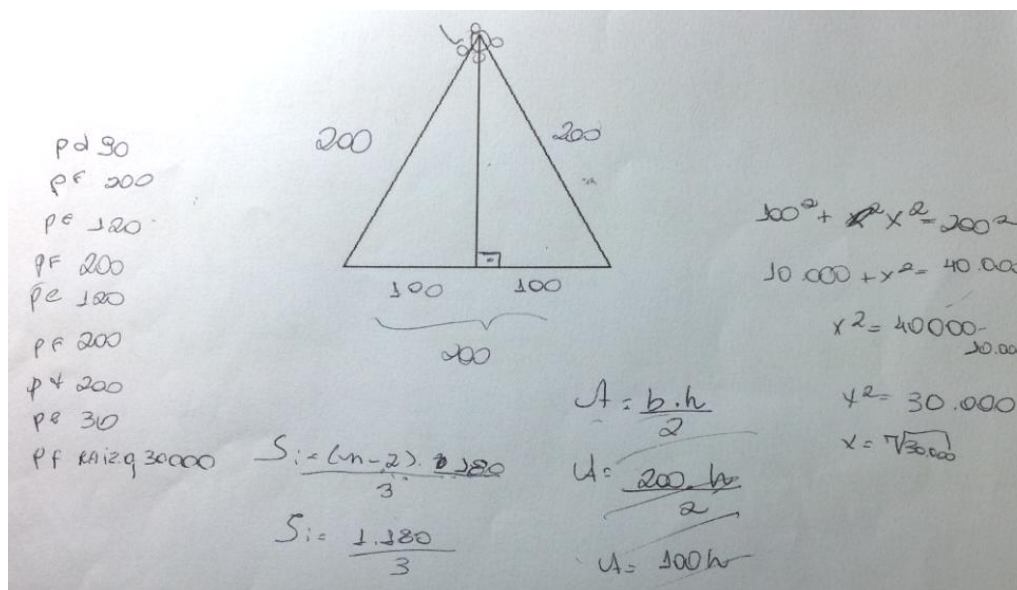 pd 90
pf 200
pe 120
pf 200
pe 120
pf 200
pt 200
pe 30
pf raiz.q 30000
200
200
100
100
200
Si = (n-2). 180
3
Si = 1.180
3
A = b.h
2
A = 200.h
2
A = 100h
100² + x² = 200²
10.000 + x² = 40.000
x² = 40000-
10.000
x² = 30.000
x = √30.000